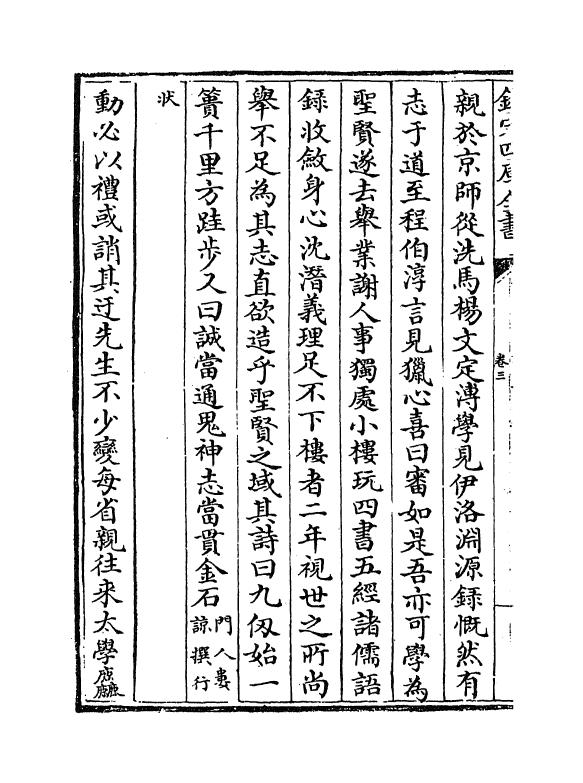 欽定四庫全書
卷三
親於京師從洗馬楊文定溥學見伊洛淵源錄慨然有
志于道至程伯淳言見獵心喜曰審如是吾亦可學為
聖賢遂去舉業謝人事獨處小樓玩四書五經諸儒語
錄收斂身心沈潛義理足不下樓者二年視世之所尚
舉不足為其志直欲造乎聖賢之域其詩曰九仞始一
簣千里方跬步又曰誠當通鬼神志當貫金石門人婁諒撰行
狀
動必以禮或誚其迂先生不少變每省親往來太學